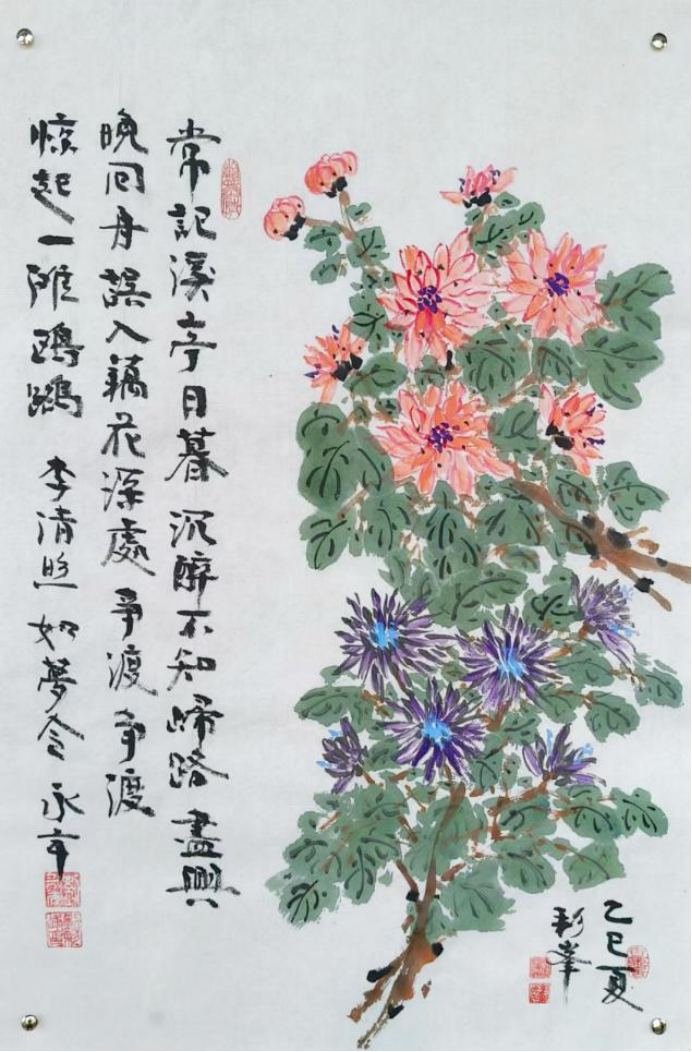 常記溪亭日暮沉醉不知歸路盡興
晚回舟誤入藕花深處爭渡爭渡
驚起一灘鷗鷺 李清照如夢令 永章
乙巳夏
彩峯